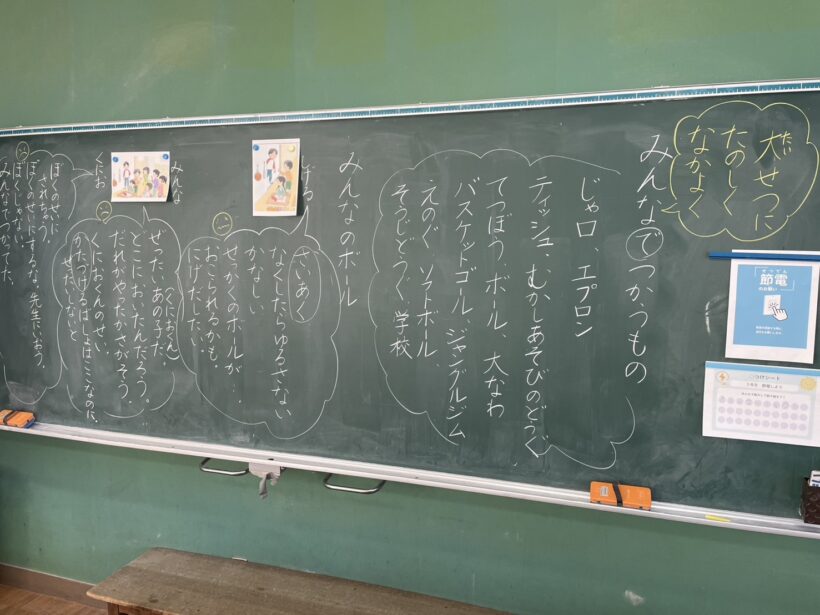 大せつに
たい
たのしく
なかよく
みんなでつかうもの
じゃ口、エプロン
ティッシュ、むかしあそびのどうぐ
てつぼう ボール 大なわ
バスケットゴール ジャングルジム
えのぐ ソフトボール
そうじどうぐ 学校
みんなのボール
さいあく
なくしたらゆるさない
かなしい
せっかくのボールが…
おこられるかも。
にげだしたい。
みんな
くにおくん
ぜったいあの子だ。
どこにおいたんだろう。
だれがやったかさがそう。
くにおくんのせい
かたづけるばしょはここなのに、
せきにんと
くにお
ぼくのせいに
されそう。
ぼくのせいにするな。先生にいおう。
ぼくじゃない。
みんなでつかってた。
せつでん
節電
のお願い